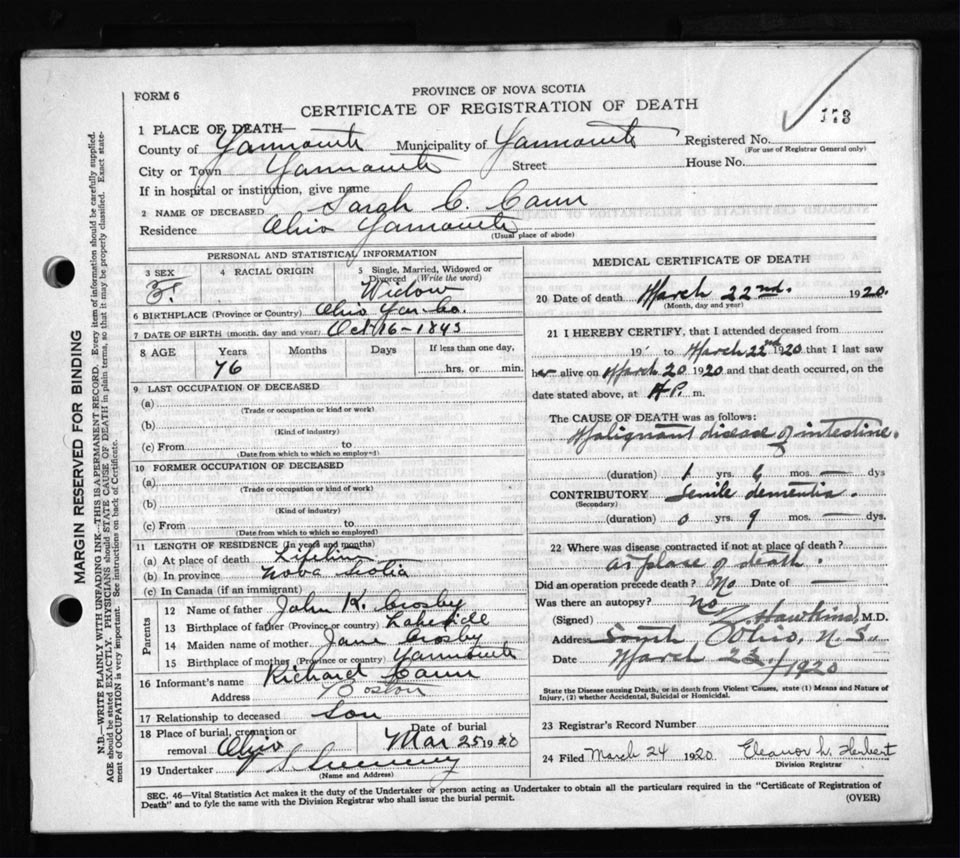 FORM 6
PROVINCE OF NOVA SCOTIA
CERTIFICATE OF REGISTRATION OF DEATH
113
1 PLACE OF DEATH—
County of Yarmouth Municipality of Yarmouth Registered No.
(For use of Registrar General only)
City or Town Yarmouth Street House No.
If in hospital or institution, give name
2 NAME OF DECEASED Sarah C. Cann
Residence Ohio Yarmouth
(Usual place of abode)
PERSONAL AND STATISTICAL INFORMATION
3 SEX F. 4 RACIAL ORIGIN 5 Single, Married, Widowed or Divorced (Write the word) Widow
6 BIRTHPLACE (Province or Country) Ohio Yar. Co.
7 DATE OF BIRTH (month, day and year) Oct 16-1843
8 AGE Years Months Days If less than one day,
76 hrs. or min.
9 LAST OCCUPATION OF DECEASED
(a)
(Trade or occupation or kind or work)
(b)
(Kind of industry)
(c) From to
(Date from which to which so employed)
10 FORMER OCCUPATION OF DECEASED
(a)
(Trade or occupation or kind of work)
(b)
(Kind of industry)
(c) From to
(Date from which to which so employed)
11 LENGTH OF RESIDENCE (In years and months)
(a) At place of death Lifetime
(b) In province Nova Scotia
(c) In Canada (if an immigrant)
Parents
12 Name of father John K. Crosby
13 Birthplace of father (Province or country) Lakeside
14 Maiden name of mother Jane Crosby
15 Birthplace of mother (Province or country) Yarmouth
16 Informant's name Richard Cann
Address Boston
17 Relationship to deceased Son
18 Place of burial, cremation or removal Ohio Date of burial Mar 25 1920
19 Undertaker Sweeney
(Name and Address)
MEDICAL CERTIFICATE OF DEATH
20 Date of death March 22nd. 1920.
(Month, day and year)
21 I HEREBY CERTIFY, that I attended deceased from
191 to March 22nd 1920 that I last saw
her alive on March 20 1920 and that death occurred, on the
date stated above, at P. m.
The CAUSE OF DEATH was as follows:
Malignant disease of intestine.
(duration) 1 yrs. 6 mos. — dys
CONTRIBUTORY Senile dementia.
(Secondary)
(duration) 0 yrs. 9 mos. — dys.
22 Where was disease contracted if not at place of death?
As place of death.
Did an operation precede death? No Date of —
Was there an autopsy? No
(Signed) Hawkins, M.D.
Address South Ohio, N.S.
Date March 23/1920
State the Disease causing Death, or in death from Violent Causes, state (1) Means and Nature of
Injury, (2) whether Accidental, Suicidal or Homicidal.
23 Registrar's Record Number
24 Filed March 24 1920 Eleanor L. Herbert
Division Registrar
SEC. 46—Vital Statistics Act makes it the duty of the Undertaker or person acting as Undertaker to obtain all the particulars required in the "Certificate of Registration of
Death" and to fyle the same with the Division Registrar who shall issue the burial permit.
(OVER)
MARGIN RESERVED FOR BINDING
N.B.—WRITE PLAINLY WITH UNFADING INK—THIS IS A PERMANENT RECORD. Every item of information should be carefully supplied.
AGE should be stated EXACTLY. PHYSICIANS should STATE CAUSE OF DEATH in plain terms, so that it may be properly classified. Exact state-
ment of OCCUPATION is very important. See instructions on back of Certificate.